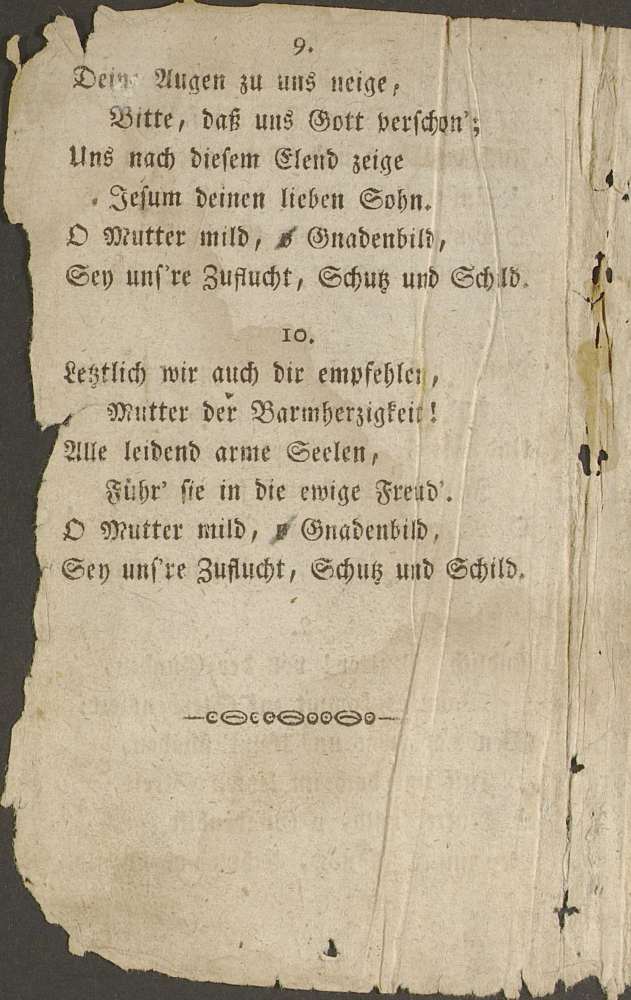 9.
Deine Augen zu uns neige,
Bitte, daß uns Gott verschon';
Uns nach diesem Elend zeige
Jesum deinen lieben Sohn.
O Mutter mild, o Gnadenbild,
Sey uns're Zuflucht, Schutz und Schild.
10.
Letztlich wir auch dir empfehlen,
Mutter der Barmherzigkeit!
Alle leidend arme Seelen,
Führ' sie in die ewige Freud'.
O Mutter mild, o Gnadenbild,
Sey uns're Zuflucht, Schutz und Schild.